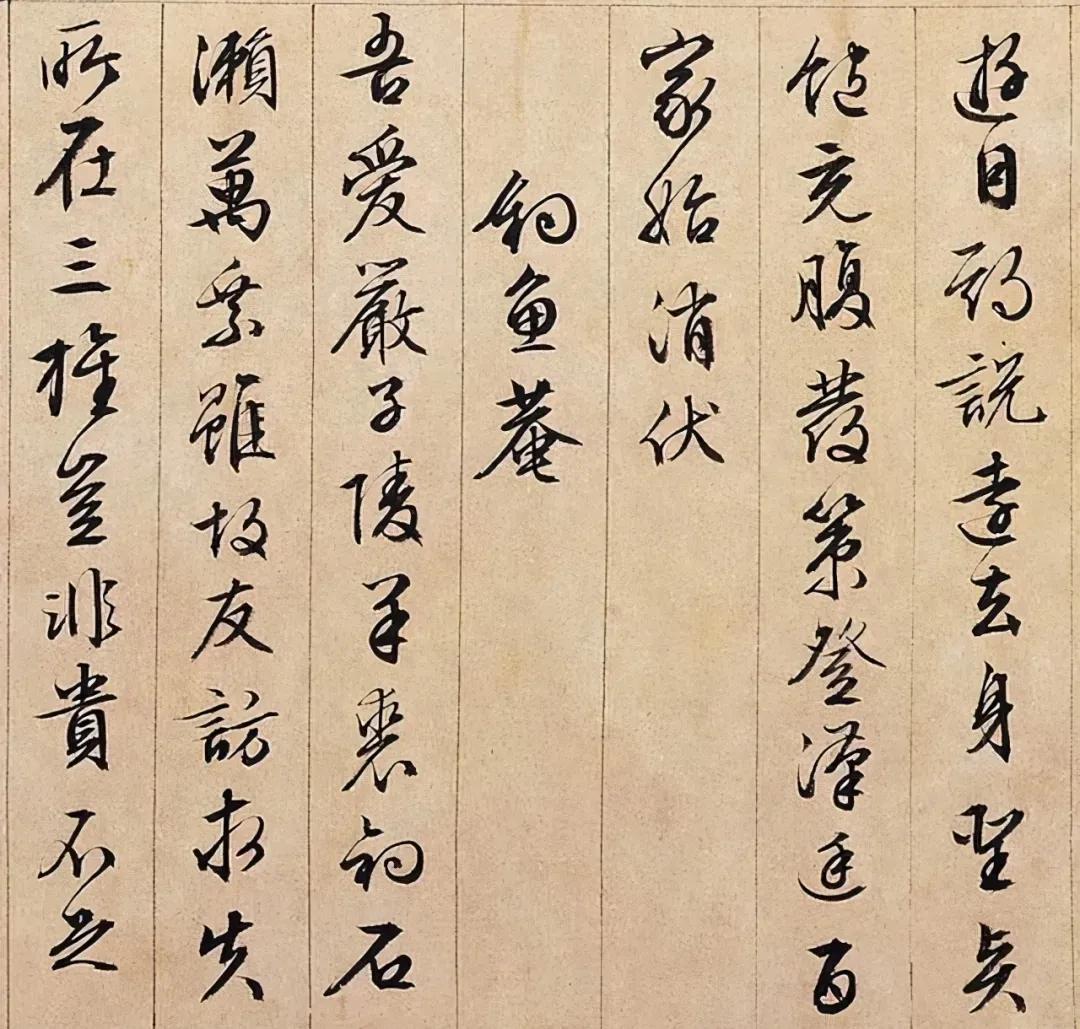 遊目邪說遠去身聖
飽充腹發策登漢廷百
家始消伏
釣魚菴
吾愛嚴子陵羊裘釣石
瀨萬乘雖故友訪求失
所在三旌豈非貴不足